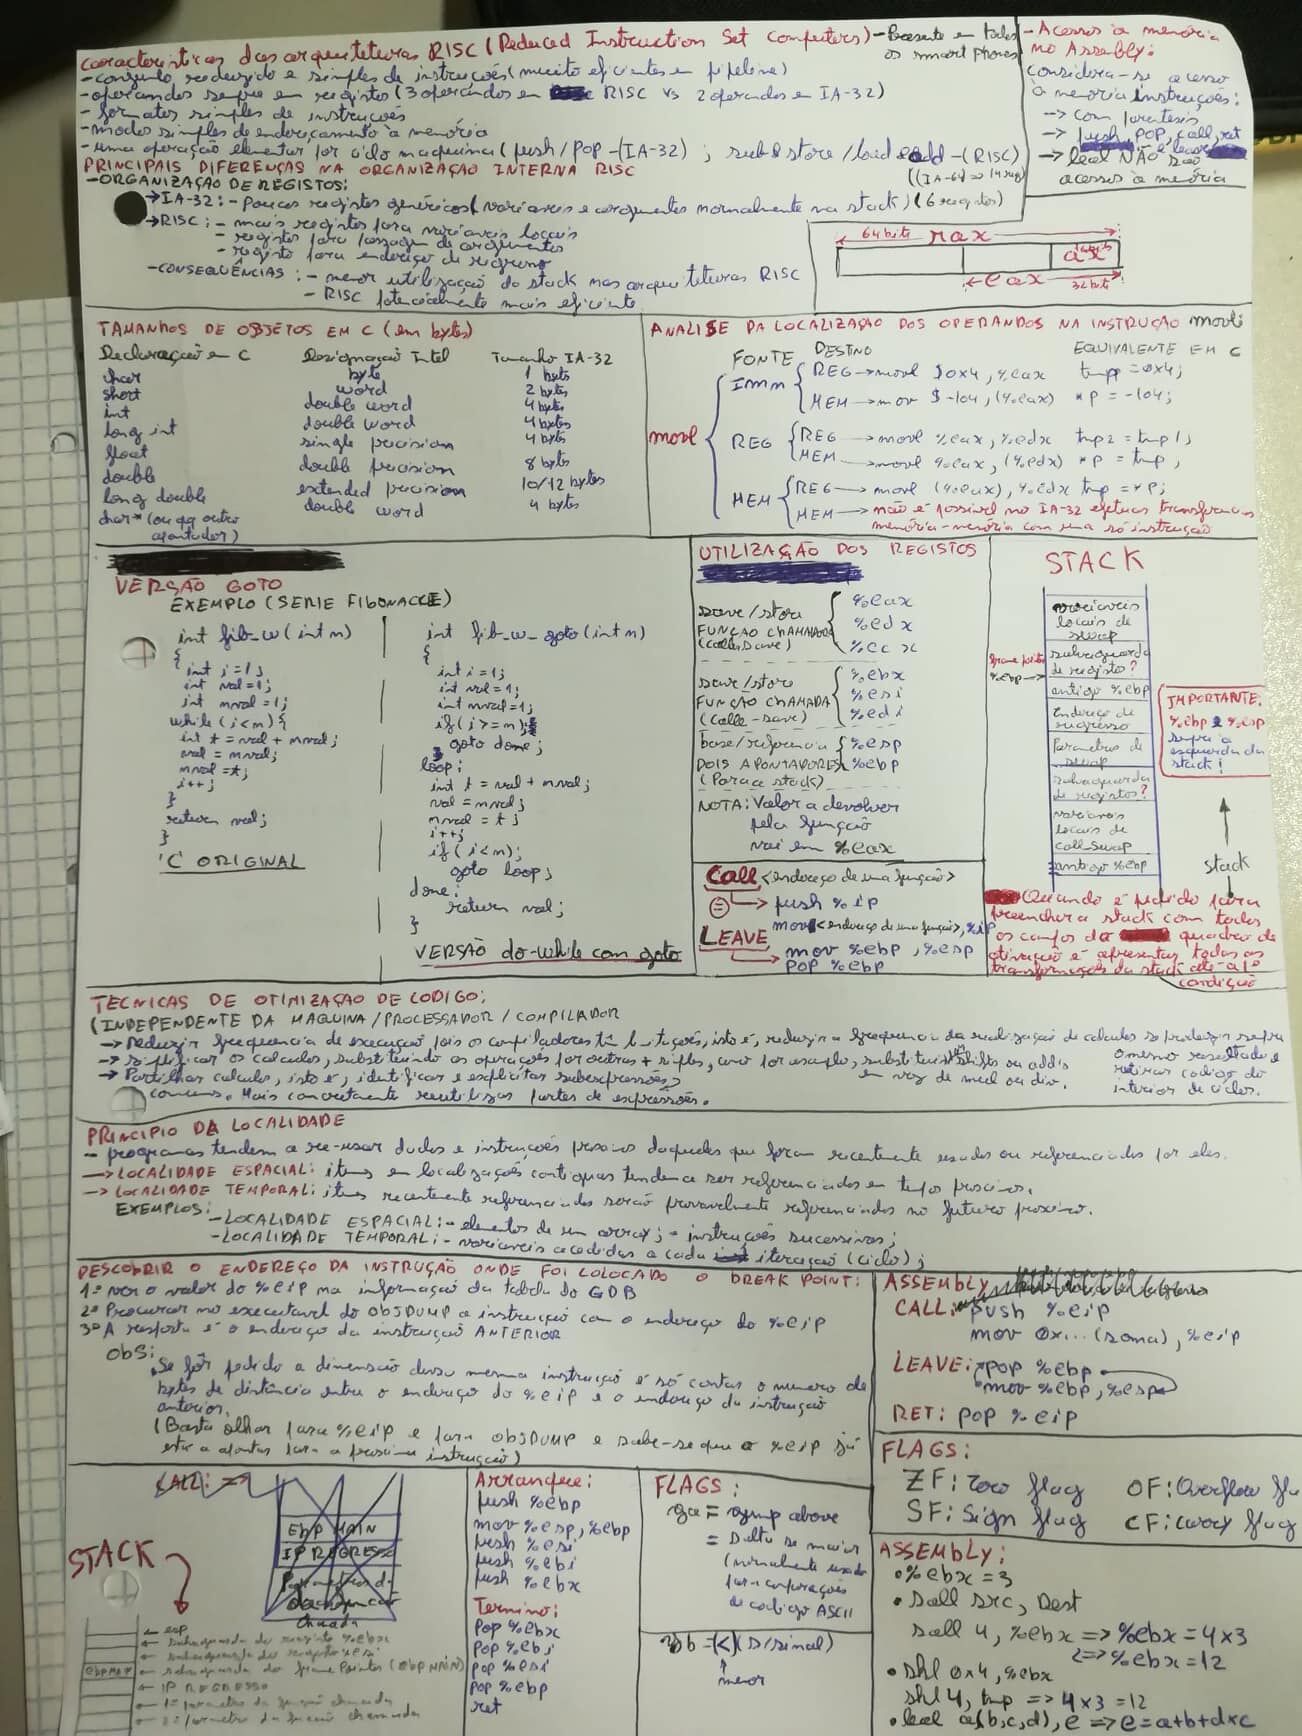 Características das arquiteturas RISC (Reduced Instruction Set Computers) - Presente em todos os smart phones
- conjunto reduzido e simples de instruções (muito eficientes em pipeline)
- operandos sempre em registos (3 operandos em RISC vs 2 operandos em IA-32)
- formatos simples de instruções
- modos simples de endereçamento à memória
- uma operação elementar por ciclo máquina (push/pop - (IA-32) ; sub & store / load & add - (RISC)
PRINCIPAIS DIFERENÇAS NA ORGANIZAÇÃO INTERNA RISC
- ORGANIZAÇÃO DE REGISTOS:
→ IA-32: - poucos registos genéricos (variaveis e argumentos normalmente na stack) (6 registos)
→ RISC: - mais registos para variaveis locais
- registos para passagem de argumentos
- registo para endereço de regresso
- CONSEQUÊNCIAS: - menor utilização da stack nas arquiteturas RISC
- RISC potencialmente mais eficiente
- Acessos à memória no Assembly:
considera-se acesso
à memória instruções:
→ com parentesis
→ push, POP, call, ret
e leave
→ leal NÃO são
acessos à memória
64 bits
rax
ax
eax
32 bits
TAMANHOS DE OBJETOS EM C (em bytes)
Declaração em C Designação Intel Tamanho IA-32
char byte 1 byte
short word 2 bytes
int double word 4 bytes
long int double word 4 bytes
float single precision 4 bytes
double double precision 8 bytes
long double extended precision 10/12 bytes
char* (ou qq outro apontador) double word 4 bytes
ANALISE DA LOCALIZAÇÃO DOS OPERANDOS NA INSTRUÇÃO movl:
FONTE DESTINO EQUIVALENTE EM C
movl
IMM REG → movl $0x4, %eax tmp = 0x4;
MEM → mov $-104, (%eax) *p = -104;
REG REG → movl %eax, %edx tmp2 = tmp1;
MEM → movl %eax, (%edx) *p = tmp;
MEM REG → movl (%eax), %edx tmp = *p;
MEM → não é possivel no IA-32 efetuar transferencias
memória-memória com uma só instrução
VERSÃO GOTO
EXEMPLO (SERIE FIBONACCI)
int fib_w(int n)
{
int i=1;
int val=1;
int nval=1;
while (i<n){
int t = val + nval;
val = nval;
nval = t;
i++;
}
return val;
}
'C' ORIGINAL
int fib_w_goto(int n)
{
int i=1;
int val=1;
int nval=1;
if(i>=n);
goto done;
loop:
int t = val + nval;
val = nval;
nval = t;
i++;
if(i<n);
goto loop;
done:
return val;
}
VERSÃO do-while com goto
UTILIZAÇÃO DOS REGISTOS
save/store
FUNÇAO CHAMADORA
(caller save)
%eax
%edx
%ecx
save/store
FUNÇÃO CHAMADA
(calle-save)
%ebx
%esi
%edi
base/referencia
DOIS APONTADORES
(Para a stack)
%esp
%ebp
NOTA: Valor a devolver
pela função
vai em %eax
Call <endereço de uma função>
→ push %ip
mov <endereço de uma função>, %ip
LEAVE
→ mov %ebp, %esp
POP %ebp
STACK
variáveis
locais de
swap
salvaguarda
de registo?
frame pointer
%ebp →
antigo %ebp
Endereço de
regresso
Parametros de
swap
salvaguarda
de registos?
variaveis
locais de
call_swap
antigo %ebp
IMPORTANTE:
%ebp e %esp
sempre à
esquerda da
stack!
stack
Quando é pedido para
preencher a stack com todos
os campos do quadro de
ativação é apresentar todas as
transformações da stack até à 1ª
condição
TECNICAS DE OTIMIZAÇÃO DE CODIGO:
(INDEPENDENTE DA MAQUINA/PROCESSADOR/COMPILADOR
→ Reduzir frequencia de execução pois os compiladores têm limitações, isto é, reduzir a frequencia da realização de calculos se produzir sempre
o mesmo resultado e
retirar codigo do
interior de ciclos.
→ simplificar os calculos, substituindo as operações por outras + simples, como por exemplo, substituir shifts ou adds
em vez de mul ou div.
→ Partilhar calculo, isto é, identificar e explicitar subexpressões
comuns. Mais concretamente reutilizar partes de expressões.
PRINCIPIO DA LOCALIDADE
- programas tendem a re-usar dados e instruções proximo daqueles que foram recentemente usados ou referenciados por eles.
→ LOCALIDADE ESPACIAL: itens em localizações contiguas tendem a ser referenciados em tempos proximos.
→ LOCALIDADE TEMPORAL: itens recentemente referenciados serão provavelmente referenciados no futuro proximo.
EXEMPLOS:
- LOCALIDADE ESPACIAL: - elementos de um array; - instruções sucessivas;
- LOCALIDADE TEMPORAL: - variaveis acedidas a cada iteração (ciclo);
DESCOBRIR O ENDEREÇO DA INSTRUÇÃO ONDE FOI COLOCADO O BREAK POINT:
1º ver o valor do %eip na informação da tabela do GDB
2º Procurar no executavel do OBJDUMP a instrução com o endereço do %eip
3º A resposta é o endereço da instrução ANTERIOR
Obs:
Se fôr pedido a dimensão dessa mesma instrução é só contar o numero de
bytes de distância entre o endereço do %eip e o endereço da instrução
anterior.
(Basta olhar para %eip e para OBJDUMP e sabe-se que o %eip já
está a apontar para a proxima instrução)
ASSEMBLY
CALL: push %eip
mov 0x...(soma), %eip
LEAVE: pop %ebp
mov %ebp, %esp
RET: pop %eip
FLAGS:
ZF: Zero flag OF: Overflow
SF: Sign flag CF: carry flag
CALL: ⇒
Ebp MAIN
IP REGRESSO
chamada
STACK
← esp
← salvaguarda do registo %ebx
← salvaguarda do registo %esi
ebp MAIN ← salvaguarda do frame Pointer (ebp MAIN)
← IP REGRESSO
← 1º parametro da função chamada
← 2º parametro da função chamada
Arranque:
push %ebp
mov %esp, %ebp
push %esi
push %ebi
push %ebx
Termino:
POP %ebx
POP %ebi
POP %esi
POP %ebp
ret
FLAGS:
ja = jump above
= salta se maior
(normalmente usado
para comparações
de codigo ASCII
jb = (<) (s/sinal)
menor
ASSEMBLY:
• %ebx = 3
• sall src, Dest
sall 4, %ebx ⇒ %ebx = 4x3
⇔ %ebx = 12
• shl 0x4, %ebx
shl 4, tmp ⇒ 4x3 = 12
• leal a(b,c,d), e ⇒ e = a+b+d×c